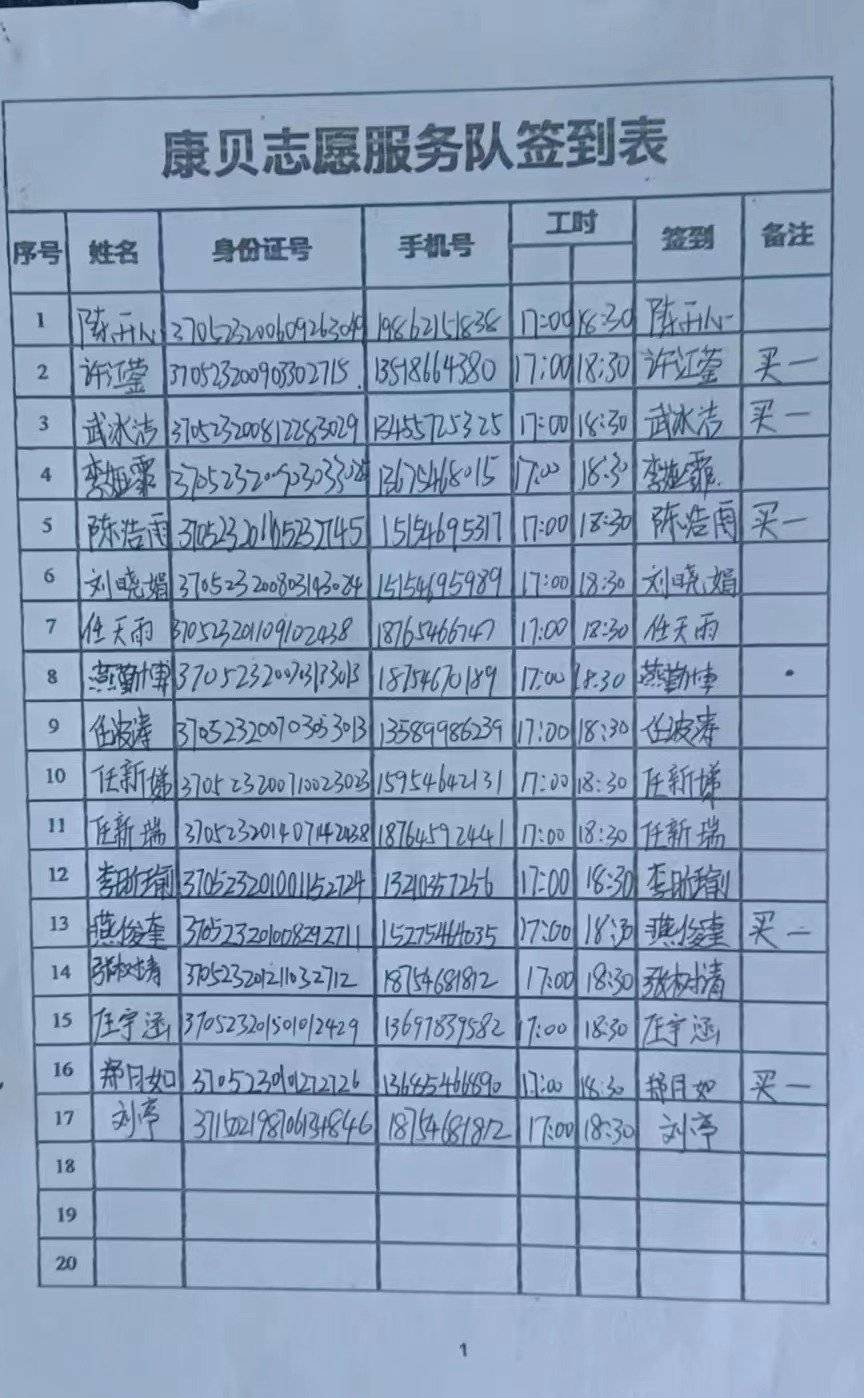 康贝志愿服务队签到表
序号 姓名 身份证号 手机号 工时 签到 备注
1 陈开心 370523200609263049 19862151838 17:00 18:30 陈开心
2 许江莹 13518664380 17:00 18:30 许江莹 买一
3 武冰洁 370523200812283029 13455725325 17:00 18:30 武冰洁 买一
4 13675468015 17:00 18:30
5 陈浩雨 15154695317 17:00 18:30 陈浩雨 买一
6 刘晓娟 15154695989 17:00 18:30 刘晓娟
7 任天雨 370523201109102438 18765466747 17:00 18:30 任天雨
8 燕勤博 18754670189 17:00 18:30 燕勤博
9 任波涛 370523200703053013 13589986239 17:00 18:30 任波涛
10 任新娣 370523200710023023 15954642131 17:00 18:30 任新娣
11 任新瑞 370523201407142438 18764592441 17:00 18:30 任新瑞
12 370523201001152724 13210357256 17:00 18:30
13 燕俊奎 370523201008292711 15275464035 17:00 18:30 燕俊奎 买一
14 张树清 370523201211032712 18754681812 17:00 18:30 张树清
15 任宇涵 370523201501012429 13697839582 17:00 18:30 任宇涵
16 郑月如 13685466890 17:00 18:30 郑月如 买一
17 刘亭 371502198706134846 18754681812 17:00 18:30 刘亭
18
19
20
1